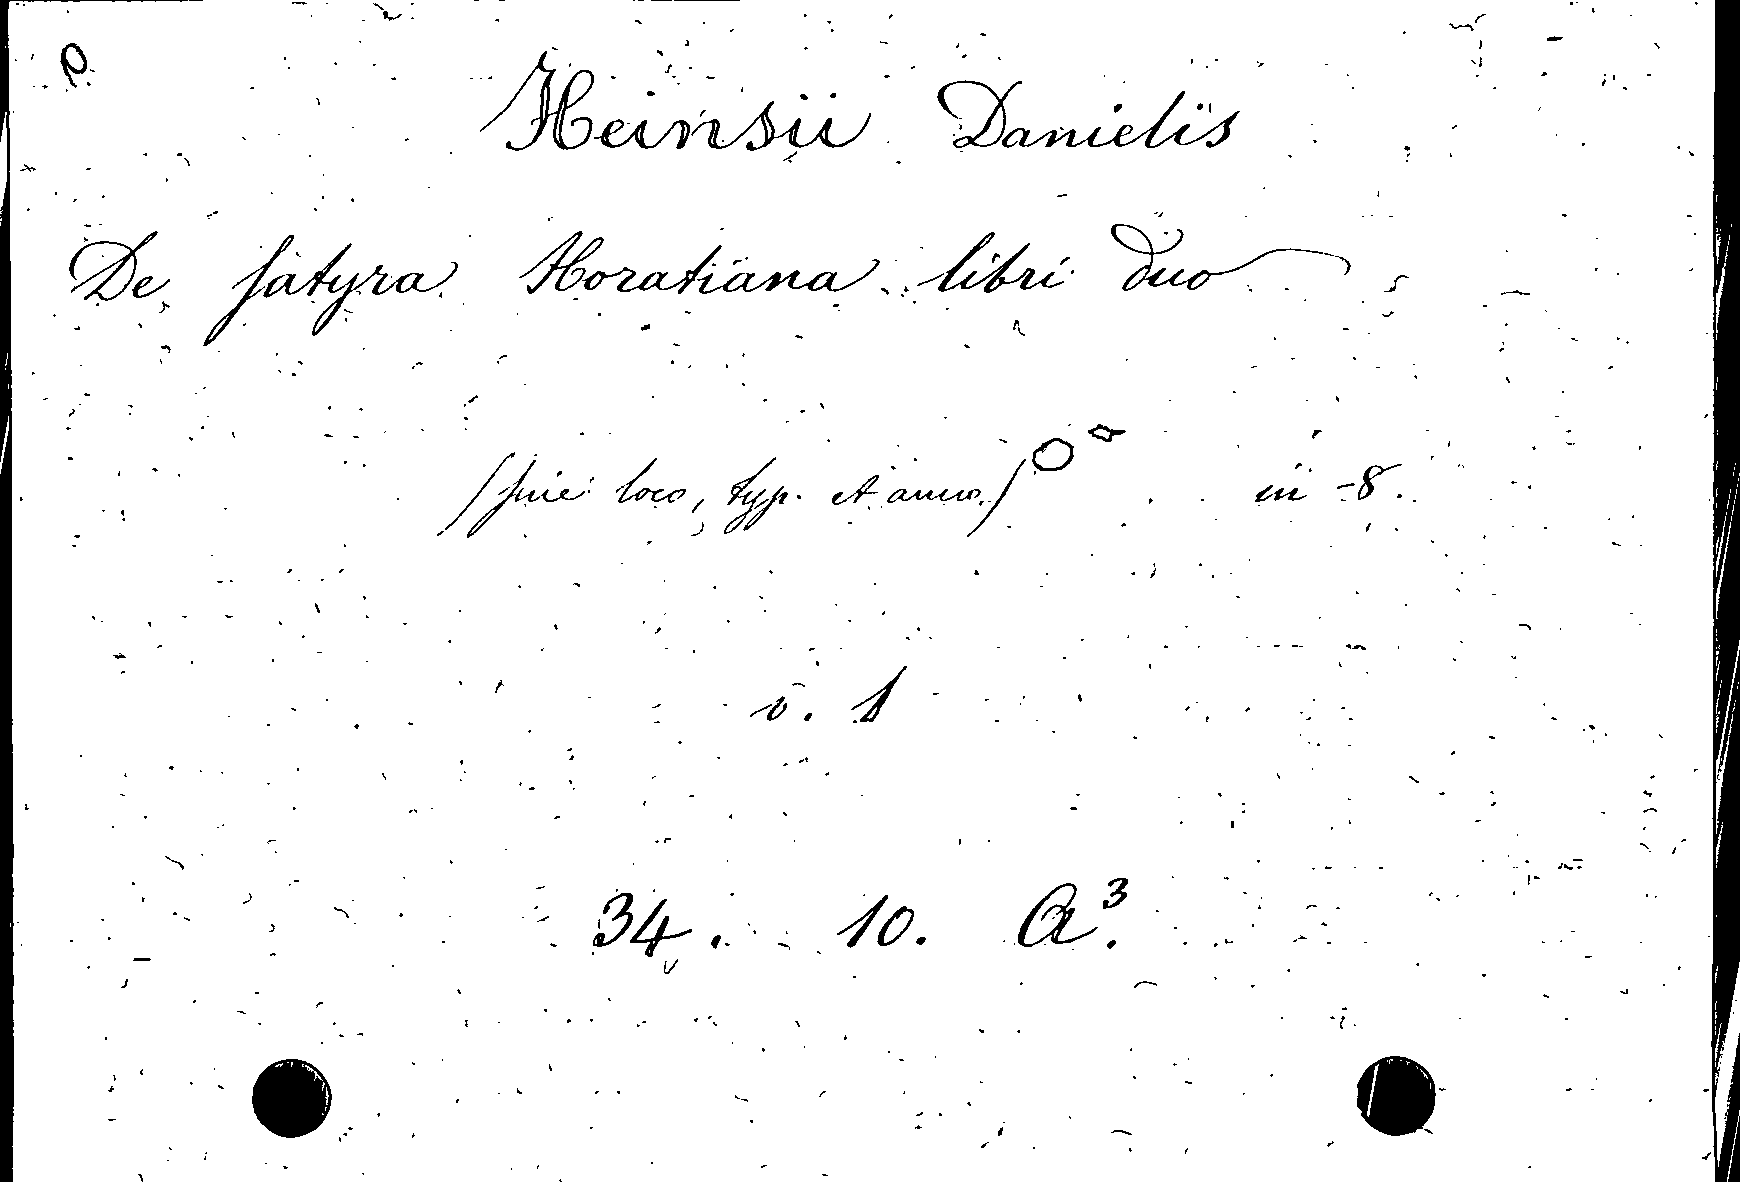 Heinsii Danielis
De satyra Horatiana libri duo
(sine loco, typ. et anno.) in -8.
v. 1
34. 10. A³.